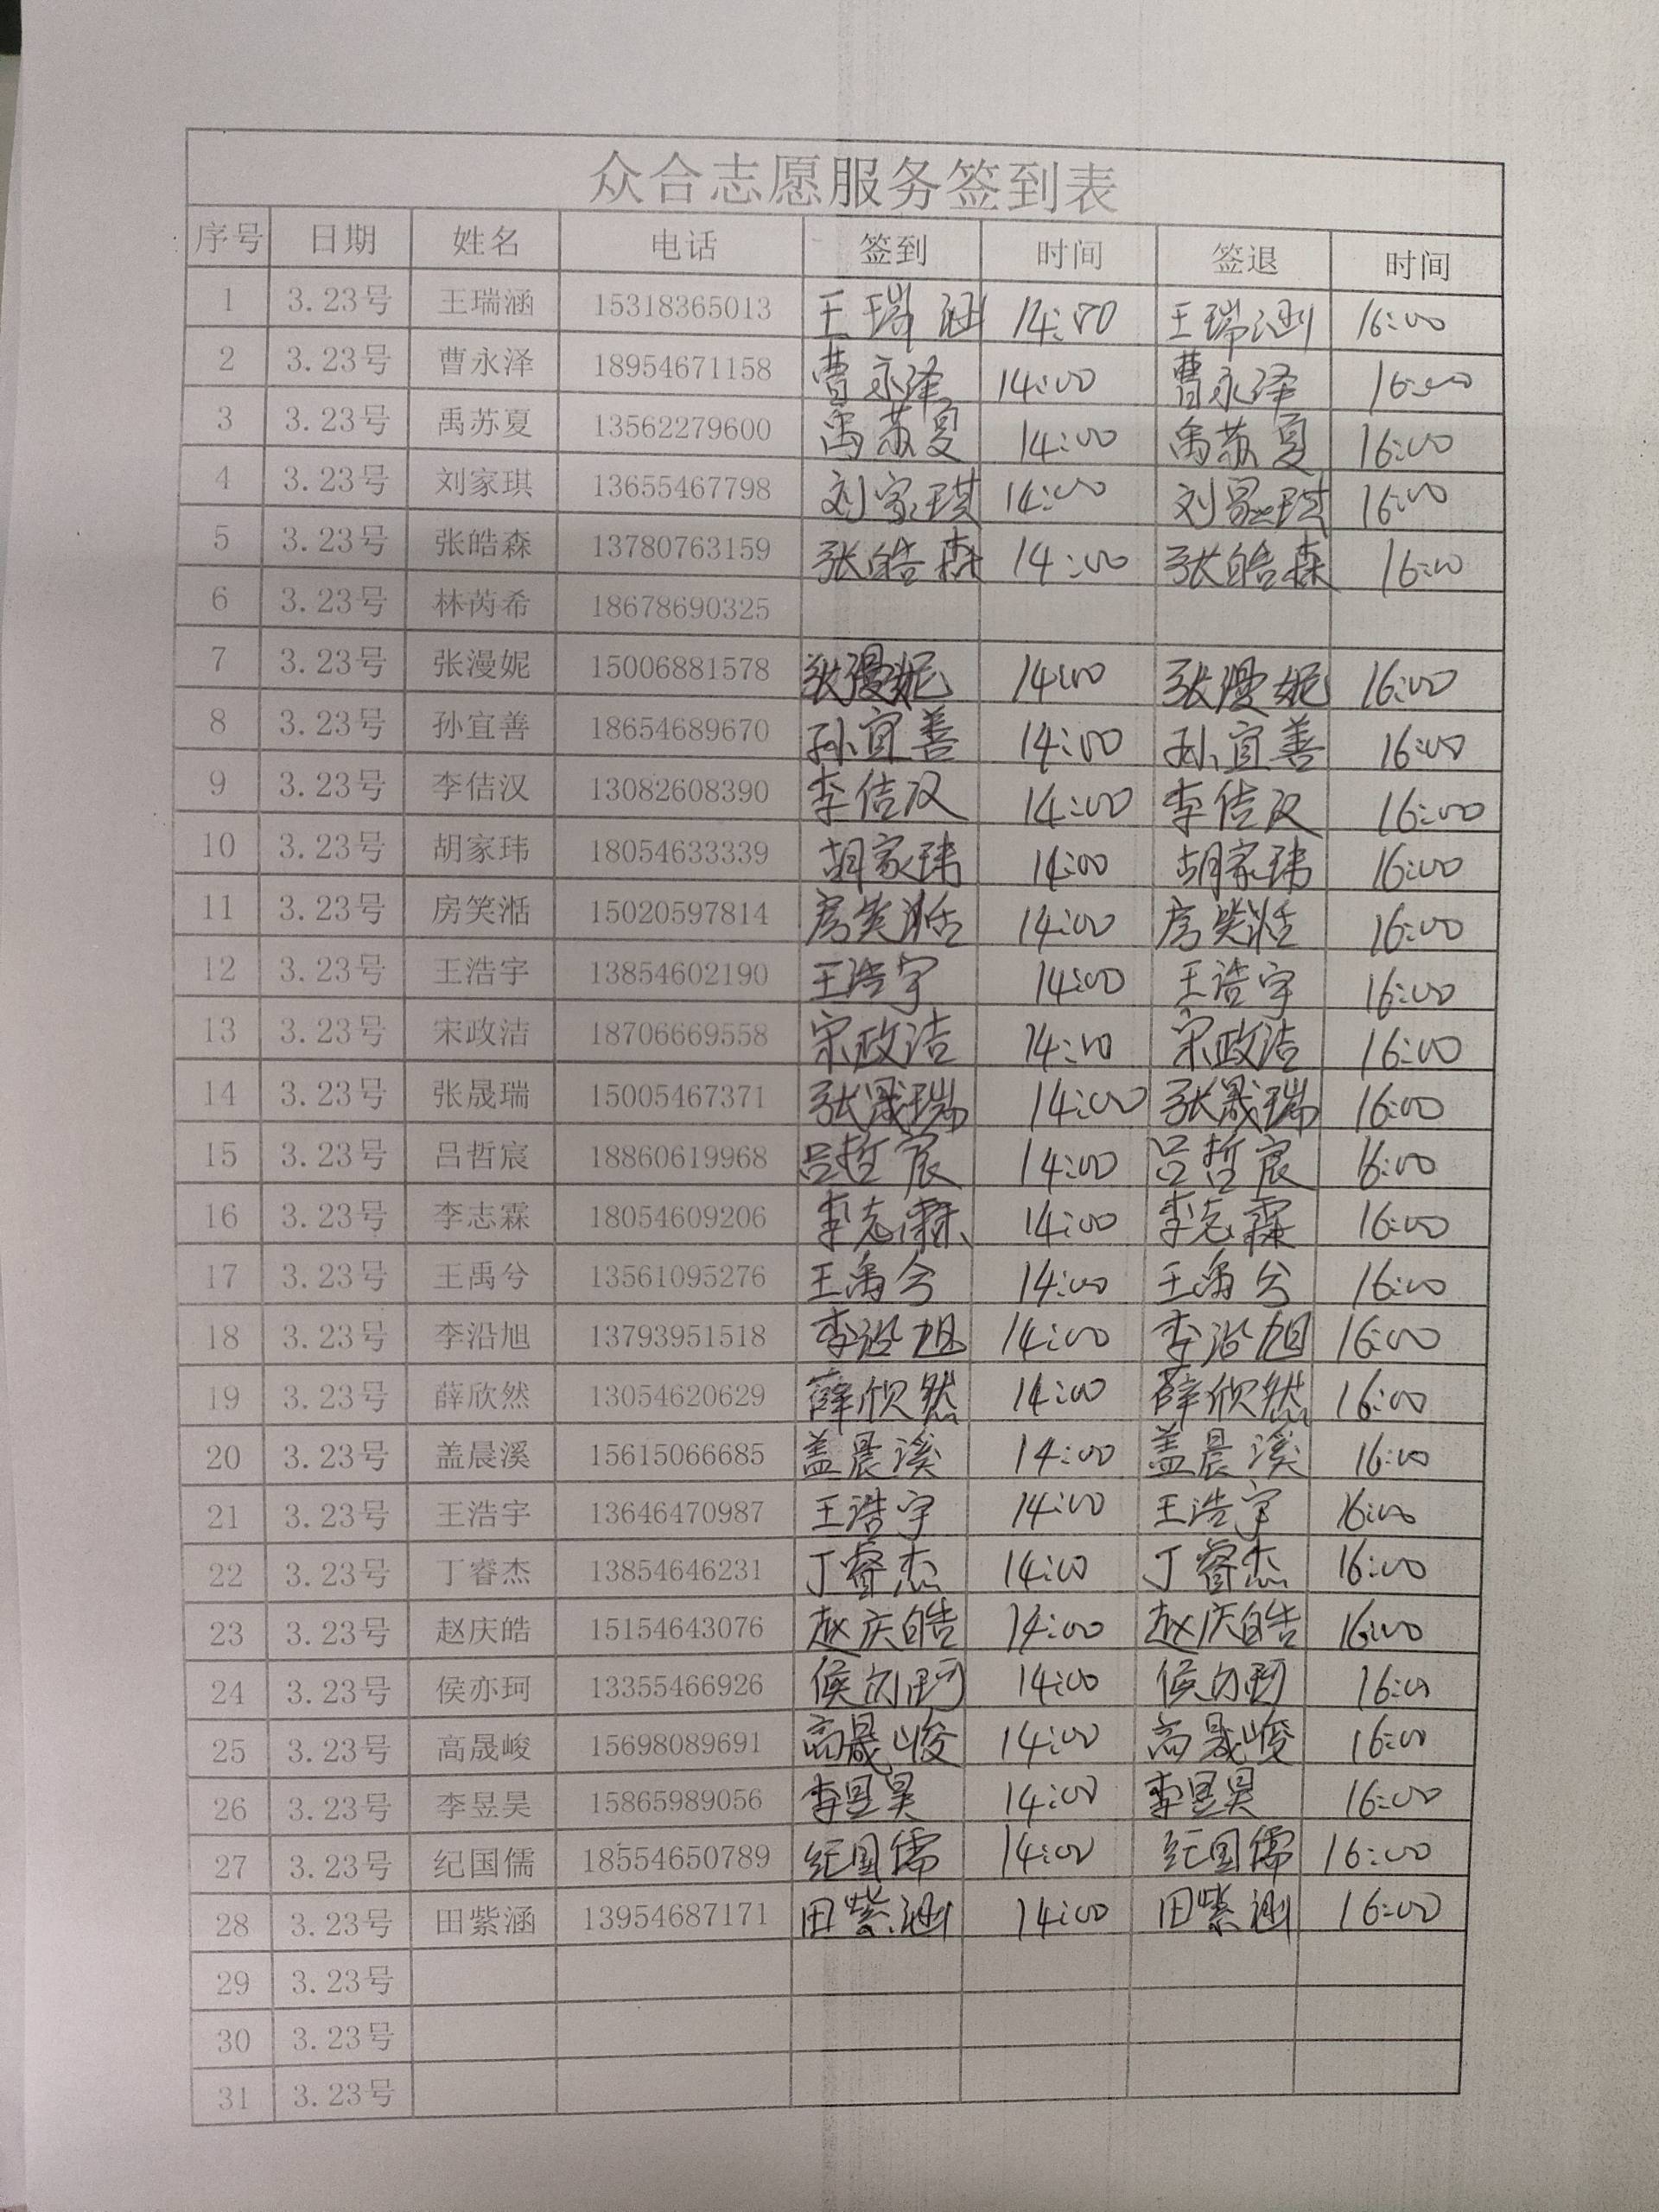 众合志愿服务签到表
序号 日期 姓名 电话 签到 时间 签退 时间
1 3.23号 王瑞涵 15318365013 王瑞涵 14:00 王瑞涵 16:00
2 3.23号 曹永泽 18954671158 曹永泽 14:00 曹永泽 16:00
3 3.23号 禹苏夏 13562279600 禹苏夏 14:00 禹苏夏 16:00
4 3.23号 刘家琪 13655467798 刘家琪 14:00 刘家琪 16:00
5 3.23号 张皓森 13780763159 张皓森 14:00 张皓森 16:00
6 3.23号 林芮希 18678690325
7 3.23号 张漫妮 15006881578 张漫妮 14:00 张漫妮 16:00
8 3.23号 孙宜善 18654689670 孙宜善 14:00 孙宜善 16:00
9 3.23号 李佶汉 13082608390 李佶汉 14:00 李佶汉 16:00
10 3.23号 胡家玮 18054633339 胡家玮 14:00 胡家玮 16:00
11 3.23号 房笑湉 15020597814 房笑湉 14:00 房笑湉 16:00
12 3.23号 王浩宇 13854602190 王浩宇 14:00 王浩宇 16:00
13 3.23号 宋政洁 18706669558 宋政洁 14:00 宋政洁 16:00
14 3.23号 张晟瑞 15005467371 张晟瑞 14:00 张晟瑞 16:00
15 3.23号 吕哲宸 18860619968 吕哲宸 14:00 吕哲宸 16:00
16 3.23号 李志霖 18054609206 李志霖 14:00 李志霖 16:00
17 3.23号 王禹兮 13561095276 王禹兮 14:00 王禹兮 16:00
18 3.23号 李沿旭 13793951518 李沿旭 14:00 李沿旭 16:00
19 3.23号 薛欣然 13054620629 薛欣然 14:00 薛欣然 16:00
20 3.23号 盖晨溪 15615066685 盖晨溪 14:00 盖晨溪 16:00
21 3.23号 王浩宇 13646470987 王浩宇 14:00 王浩宇 16:00
22 3.23号 丁睿杰 13854646231 丁睿杰 14:00 丁睿杰 16:00
23 3.23号 赵庆皓 15154643076 赵庆皓 14:00 赵庆皓 16:00
24 3.23号 侯亦珂 13355466926 侯亦珂 14:00 侯亦珂 16:00
25 3.23号 高晟峻 15698089691 高晟峻 14:00 高晟峻 16:00
26 3.23号 李昱昊 15865989056 李昱昊 14:00 李昱昊 16:00
27 3.23号 纪国儒 18554650789 纪国儒 14:00 纪国儒 16:00
28 3.23号 田紫涵 13954687171 田紫涵 14:00 田紫涵 16:00
29 3.23号
30 3.23号
31 3.23号